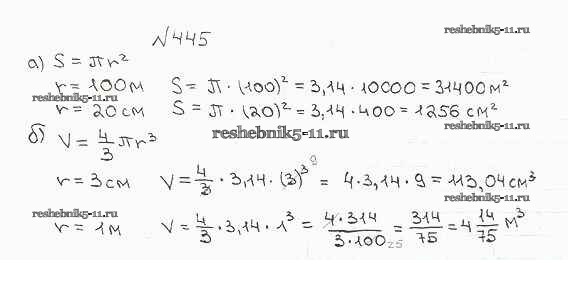 №445
reshebnik5-11.ru
а) S = πr²
r = 100м   S = π · (100)² = 3,14 · 10000 = 31400 м²
reshebnik5-11.ru
r = 20 см   S = π · (20)² = 3,14 · 400 = 1256 см²
reshebnik5-11.ru
б) V = 4/3 πr³
reshebnik5-11.ru
r = 3 см   V = 4/3 · 3,14 · (3)³ 9 = 4 · 3,14 · 9 = 113,04 см³
reshebnik5-11.ru
reshebnik5-11.ru
r = 1м   V = 4/3 · 3,14 · 1³ = 4 · 314 / 3 · 100 25 = 314/75 = 4 14/75 м³